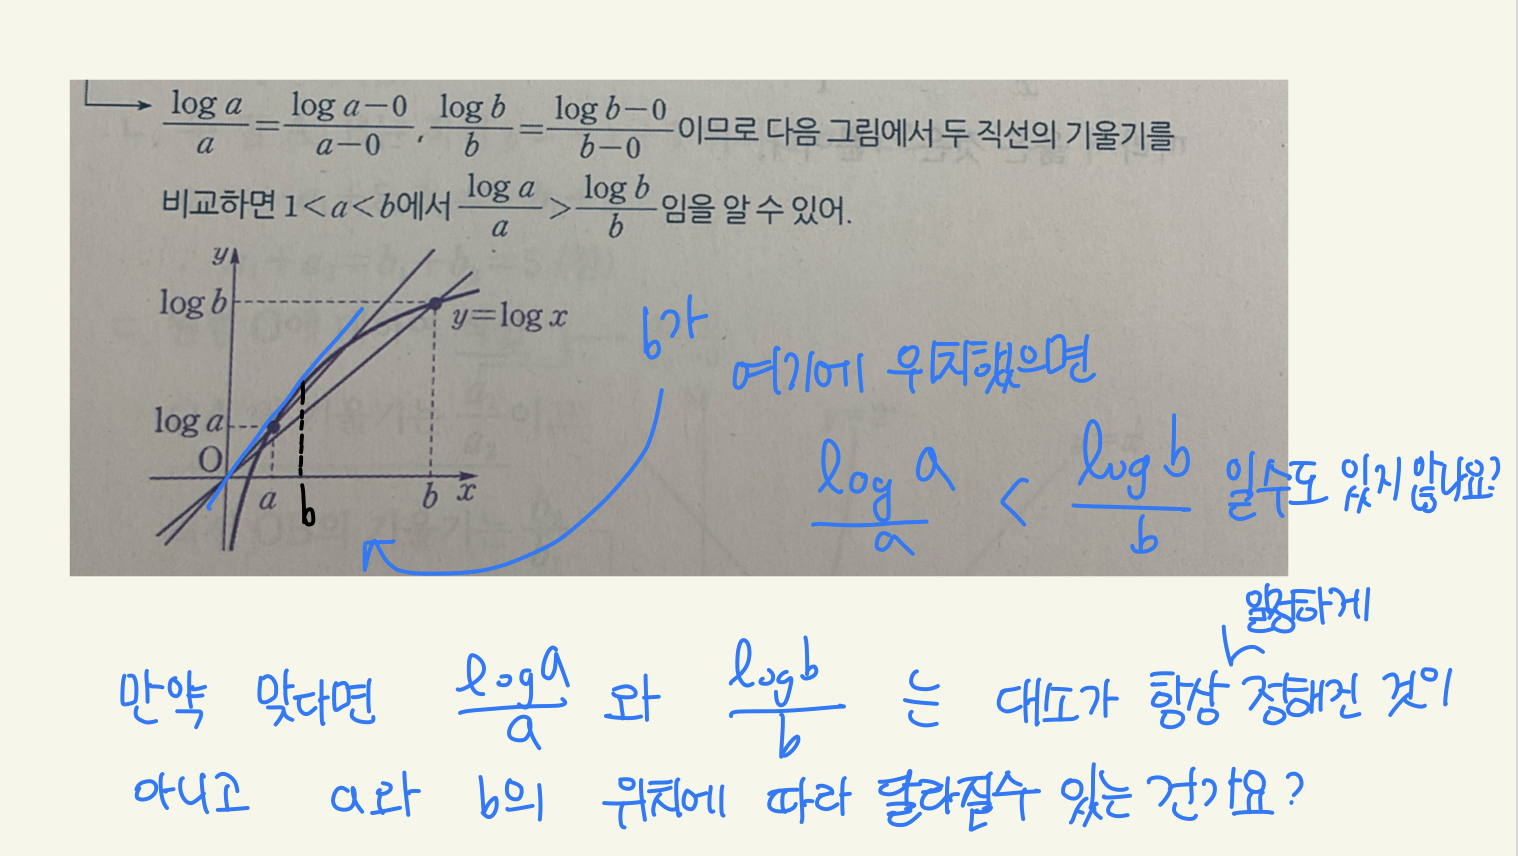 log a / a = log a-0 / a-0, log b / b = log b-0 / b-0 이므로 다음 그림에서 두 직선의 기울기를
비교하면 1<a<b에서 log a / a > log b / b 임을 알 수 있어.
y
log b
y=log x
log a
O
a
b
b
x
b가
여기에 위치했으면
log a / a < log b / b 일수도 있지 않나요?
일정하게
만약 맞다면 log a / a 와 log b / b 는 대소가 항상 정해진 것이
아니고 a와 b의 위치에 따라 달라질수 있는 건가요?